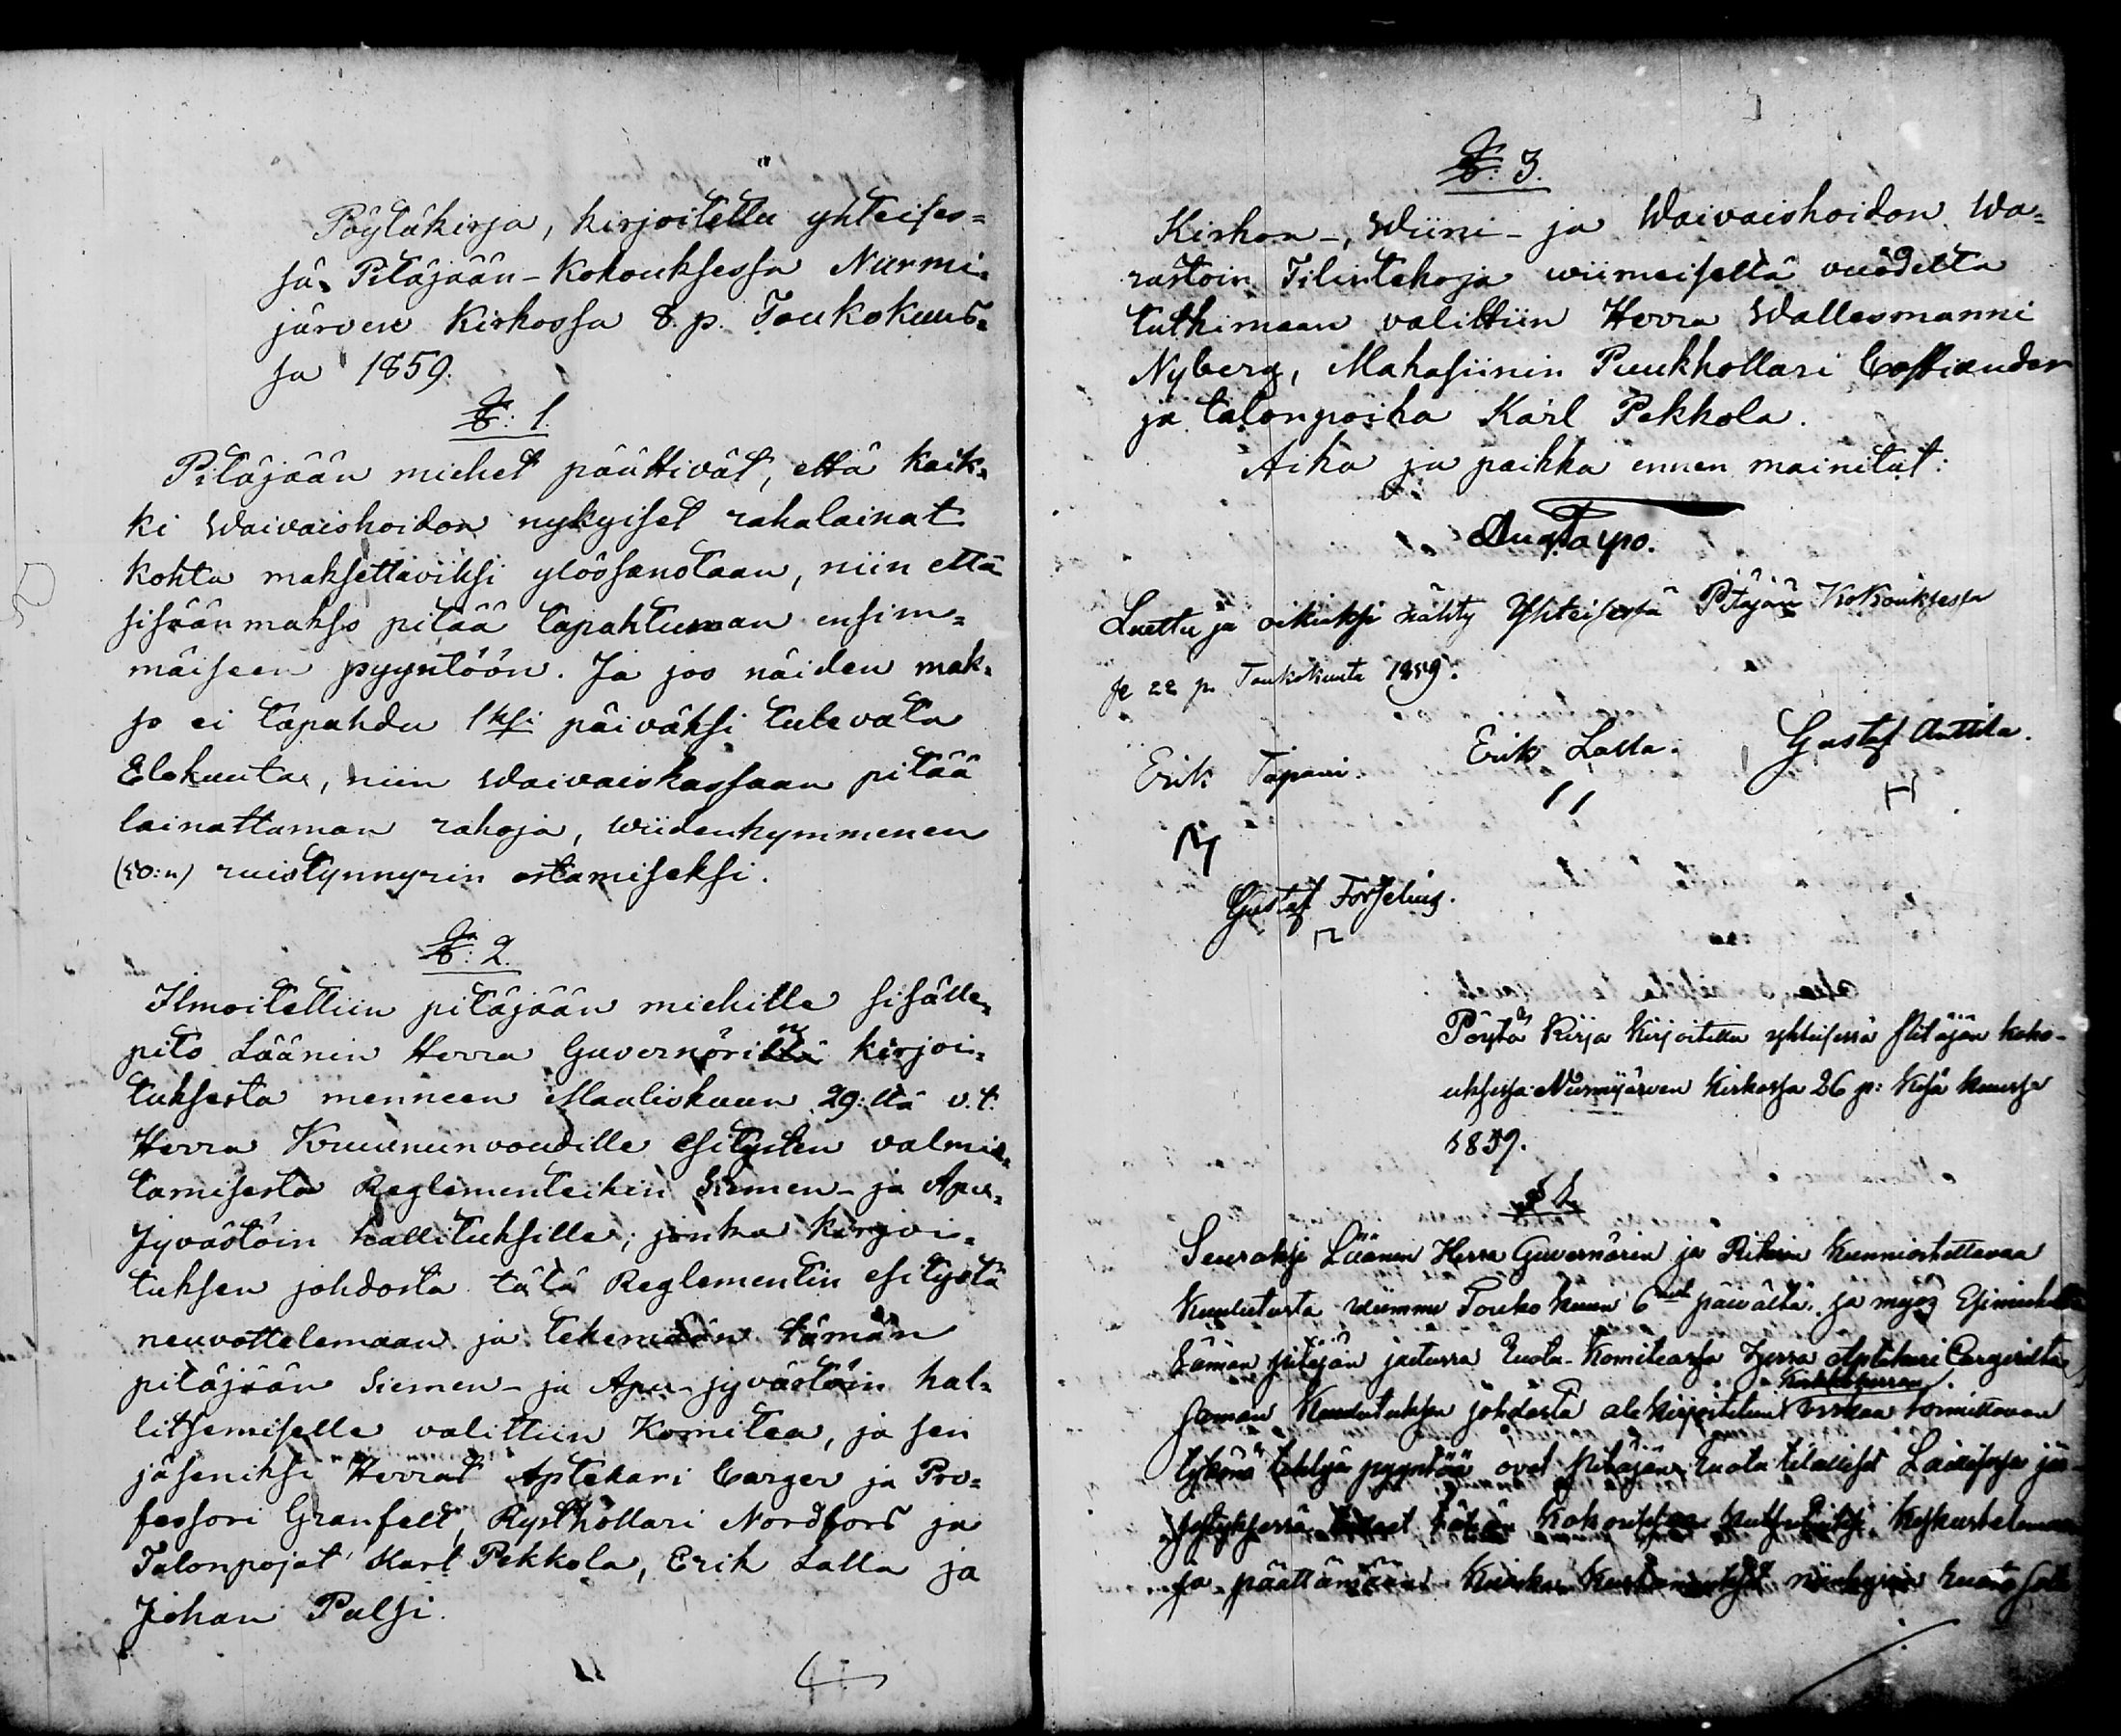 Pöytäkirja, kirjoitettu yhteises=
sä Pitäjään-Kokouksessa Nurmi=
järven Kirkossa 8 p. Toukokuus=
sa 1859.
§: 1.
Pitäjään miehet päättivät, että kaik=
ki Waivaishoidon nykyiset rahalainat
kohta maksettaviksi ylösanotaan, niin että
sisäänmakso pitää tapahtuman ensim=
mäiseen pyyntöön. Ja jos näiden mak=
so ei tapahdu 1ksi päiväksi tulevata
Elokuuta, niin Waivaiskassaan pitää
lainattaman rahoja, wiidenkymmenen
(50:n) ruistynnyrin ostamiseksi.
§: 2.
Ilmoitettiin pitäjään miehille sisälle=
pito Läänin Herra Guvernörin kirjoi=
tuksesta menneen Maaliskuun 29:ltä v. t.
Herra Kruununvoudille esitysten valmis=
tamisesta Reglementeihin Siemen- ja Apu=
Jyvästöin hallituksille; jonka kirjoi=
tuksen johdosta tätä Reglementin esitystä
neuvottelemaan ja tekemään tämän
pitäjään Siemen- ja Apu-jyvästöin hal=
litsemiselle valittiin Komitea, ja sen
jäseniksi Herrat Aptekari Carger ja Pro=
fessori Granfelt, Rysthollari Nordfors ja
Talonpojat Karl Pekkola, Erik Lalla ja
Johan Palsi.
§: 3.
Kirkon-, Wiini- ja Waivaishoidon Wa=
rastoin Tilintekoja wiimeiseltä vuodelta
tutkimaan valittiin Herra Wallesmanni
Nyberg, Makasiinin Puukhollari Cassiander
ja talonpoika Karl Pekkola.
Aika ja paikka ennen mainitut:
Luettu ja oikiaksi nähty Yhteisessä Pitäjän Kokouksessa
se 22 p. Toukokuuta 1859.
Erik Tapani. Erik Lalla. Gustaf Anttila.
Gustaf Forselius.
Pöytä Kirja Kirjoitettu yhteisessä Pitäjän koko-
uksessa Nurmijärven Kirkossa 26 p: Kesä kuussa
1859.
§ 1.
Seuraksi Läänin Herra Guvernörin ja Ritarin Kunnioitettavaa
Kuulutusta wiimme Touko kuun 6 päivältä, ja myös Esimiehen
tämän pitäjän jaetussa Ruota-Komiteassa Herra Aptekari Cargerilta
Kirkkoherran
saman Kuulutuksen johdosta alekirjoitetun toimittavan
tykönä tehtyä pyyntöä ovat Pitäjän Ruota tilalliset Laillisessa jär-
jestyksessä tähän Kokoukseen Keskustelemaan
ja päättämään Kuinka